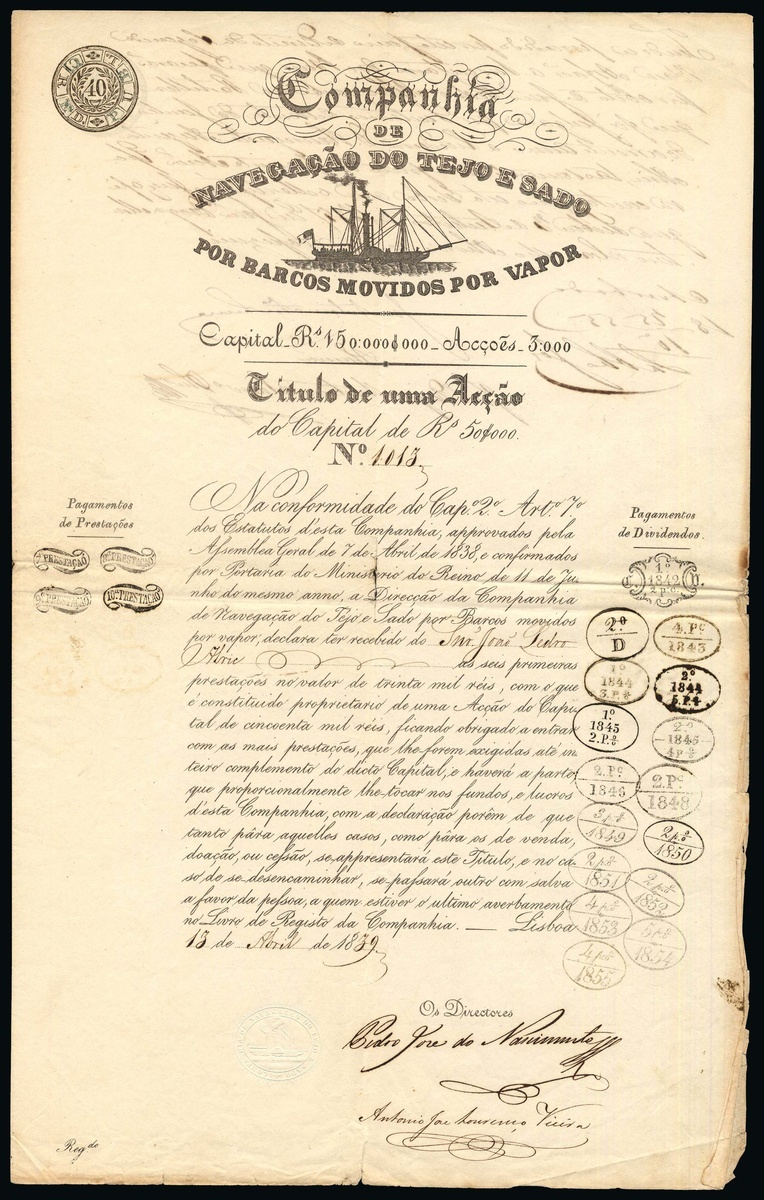 Companhia
DE
NAVEGAÇÃO DO TEJO E SADO
POR BARCOS MOVIDOS POR VAPOR
40
Capital_R.s 150:000$000_Acções_3:000
Titulo de uma Acção
do Capital de R.s 50$000.
N.o 1013
Pagamentos
de Prestações
PRESTAÇÃO
PRESTAÇÃO
PRESTAÇÃO
10.a PRESTAÇÃO
Na conformidade do Cap.o 2.o Art.o 7.o
dos Estatutos d'esta Companhia, approvados pela
Assemblea Geral de 7 de Abril de 1838, e confirmados
por Portaria do Ministerio do Reino de 11 de Ju-
nho do mesmo anno, a Direcção da Companhia
de Navegação do Tejo e Sado por Barcos movidos
por vapor, declara ter recebido do Snr. João Pedro
as seis primeiras
prestações no valor de trinta mil réis, com o que
é constituido proprietario de uma Acção do Capi-
tal de cincoenta mil réis, ficando obrigado a entrar
com as mais prestações, que lhe forem exigidas até in-
teiro complemento do dicto Capital, e haverá a parte
que proporcionalmente lhe tocar nos fundos, e lucros
d'esta Companhia, com a declaração porém de que
tanto pára aquelles casos, como pára os de venda,
doação, ou cessão, se appresentará este Titulo, e no ca-
so de se desencaminhar, se passará outro com salva
a favor da pessoa, a quem estiver o ultimo averbamento
no Livro de Registo da Companhia. — Lisboa
13 de Abril de 1839
Pagamentos
de Dividendos.
1.o
1842
2 p.c.
2.o
D
4.P.c
1843
1.o
1844
3.P.c
2.o
1844
5.P.c
1.o
1845
2.P.c
2.o
1845
4 P.c
2.P.c
1846
2.P.c
1848
3 p.c
1849
2 p.c
1850
2 p.c
1851
2 p.c
1852
4 p.c
1853
5 p.c
1854
4 p.c
1855
Os Directores
Pedro Jose do Nascimento
Antonio Joe Lourenço Vieira
Reg.do